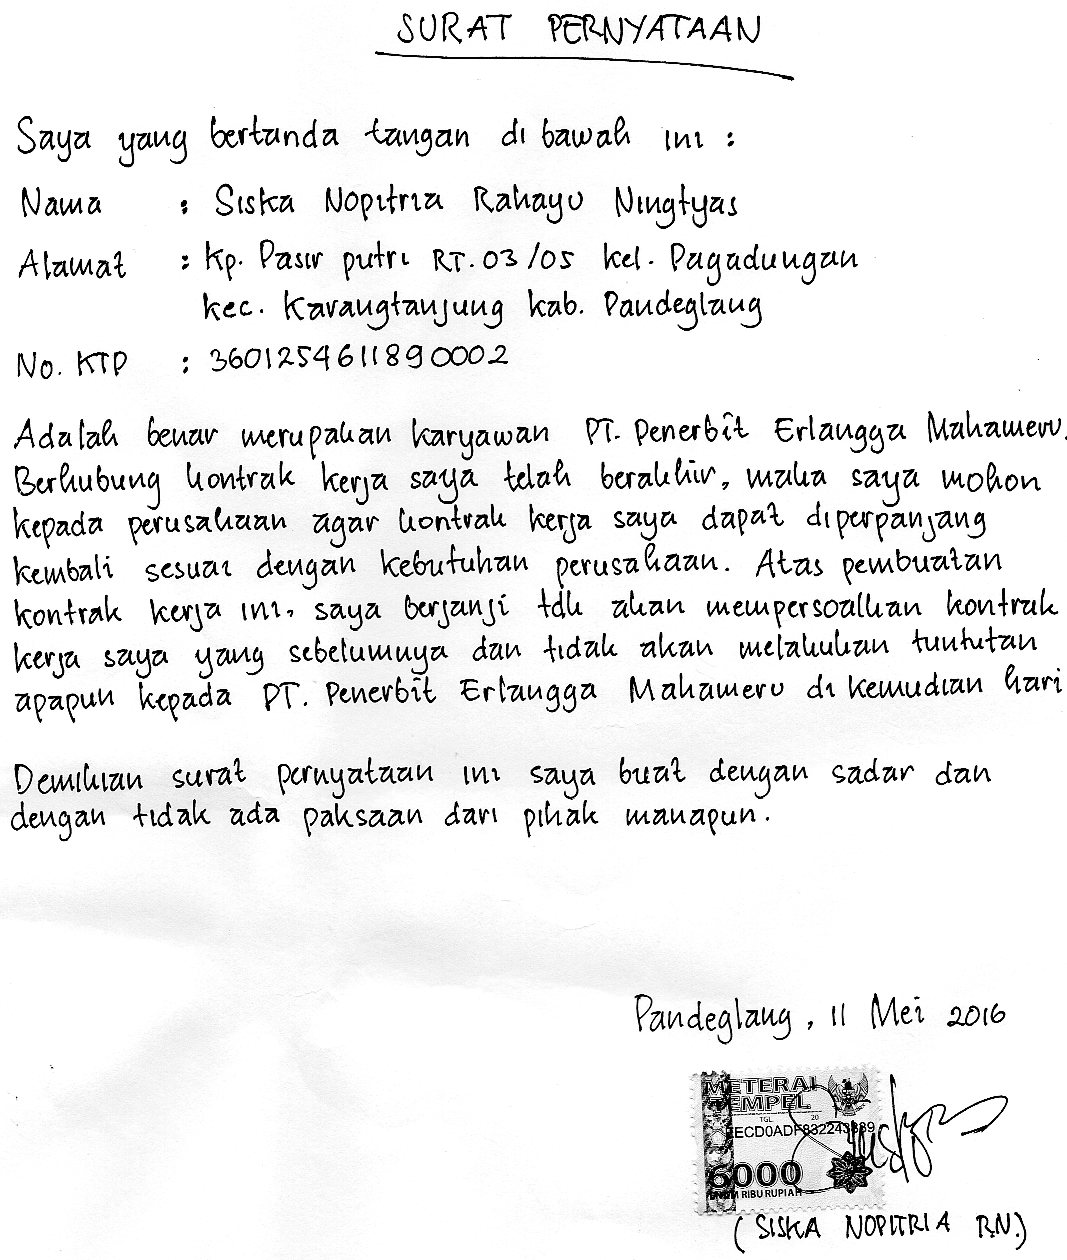 SURAT PERNYATAAN
Saya yang bertanda tangan di bawah ini :
Nama : Siska Nopitria Rahayu Ningtyas
Alamat : Kp. Pasir putri RT. 03/05 kel. Pagadungan
kec. Karangtanjung kab. Pandeglang
No. KTP : 3601254611890002
Adalah benar merupakan karyawan PT. Penerbit Erlangga Mahameru.
Berhubung kontrak kerja saya telah berakhir, maka saya mohon
kepada perusahaan agar kontrak kerja saya dapat diperpanjang
kembali sesuai dengan kebutuhan perusahaan. Atas pembuatan
kontrak kerja ini, saya berjanji tdk akan mempersoalkan kontrak
kerja saya yang sebelumnya dan tidak akan melakukan tuntutan
apapun kepada PT. Penerbit Erlangga Mahameru di kemudian hari
Demikian surat pernyataan ini saya buat dengan sadar dan
dengan tidak ada paksaan dari pihak manapun.
Pandeglang, 11 Mei 2016
METERAI
TEMPEL
TGL 20
6000
ENAM RIBU RUPIAH
(SISKA NOPITRIA R.N.)